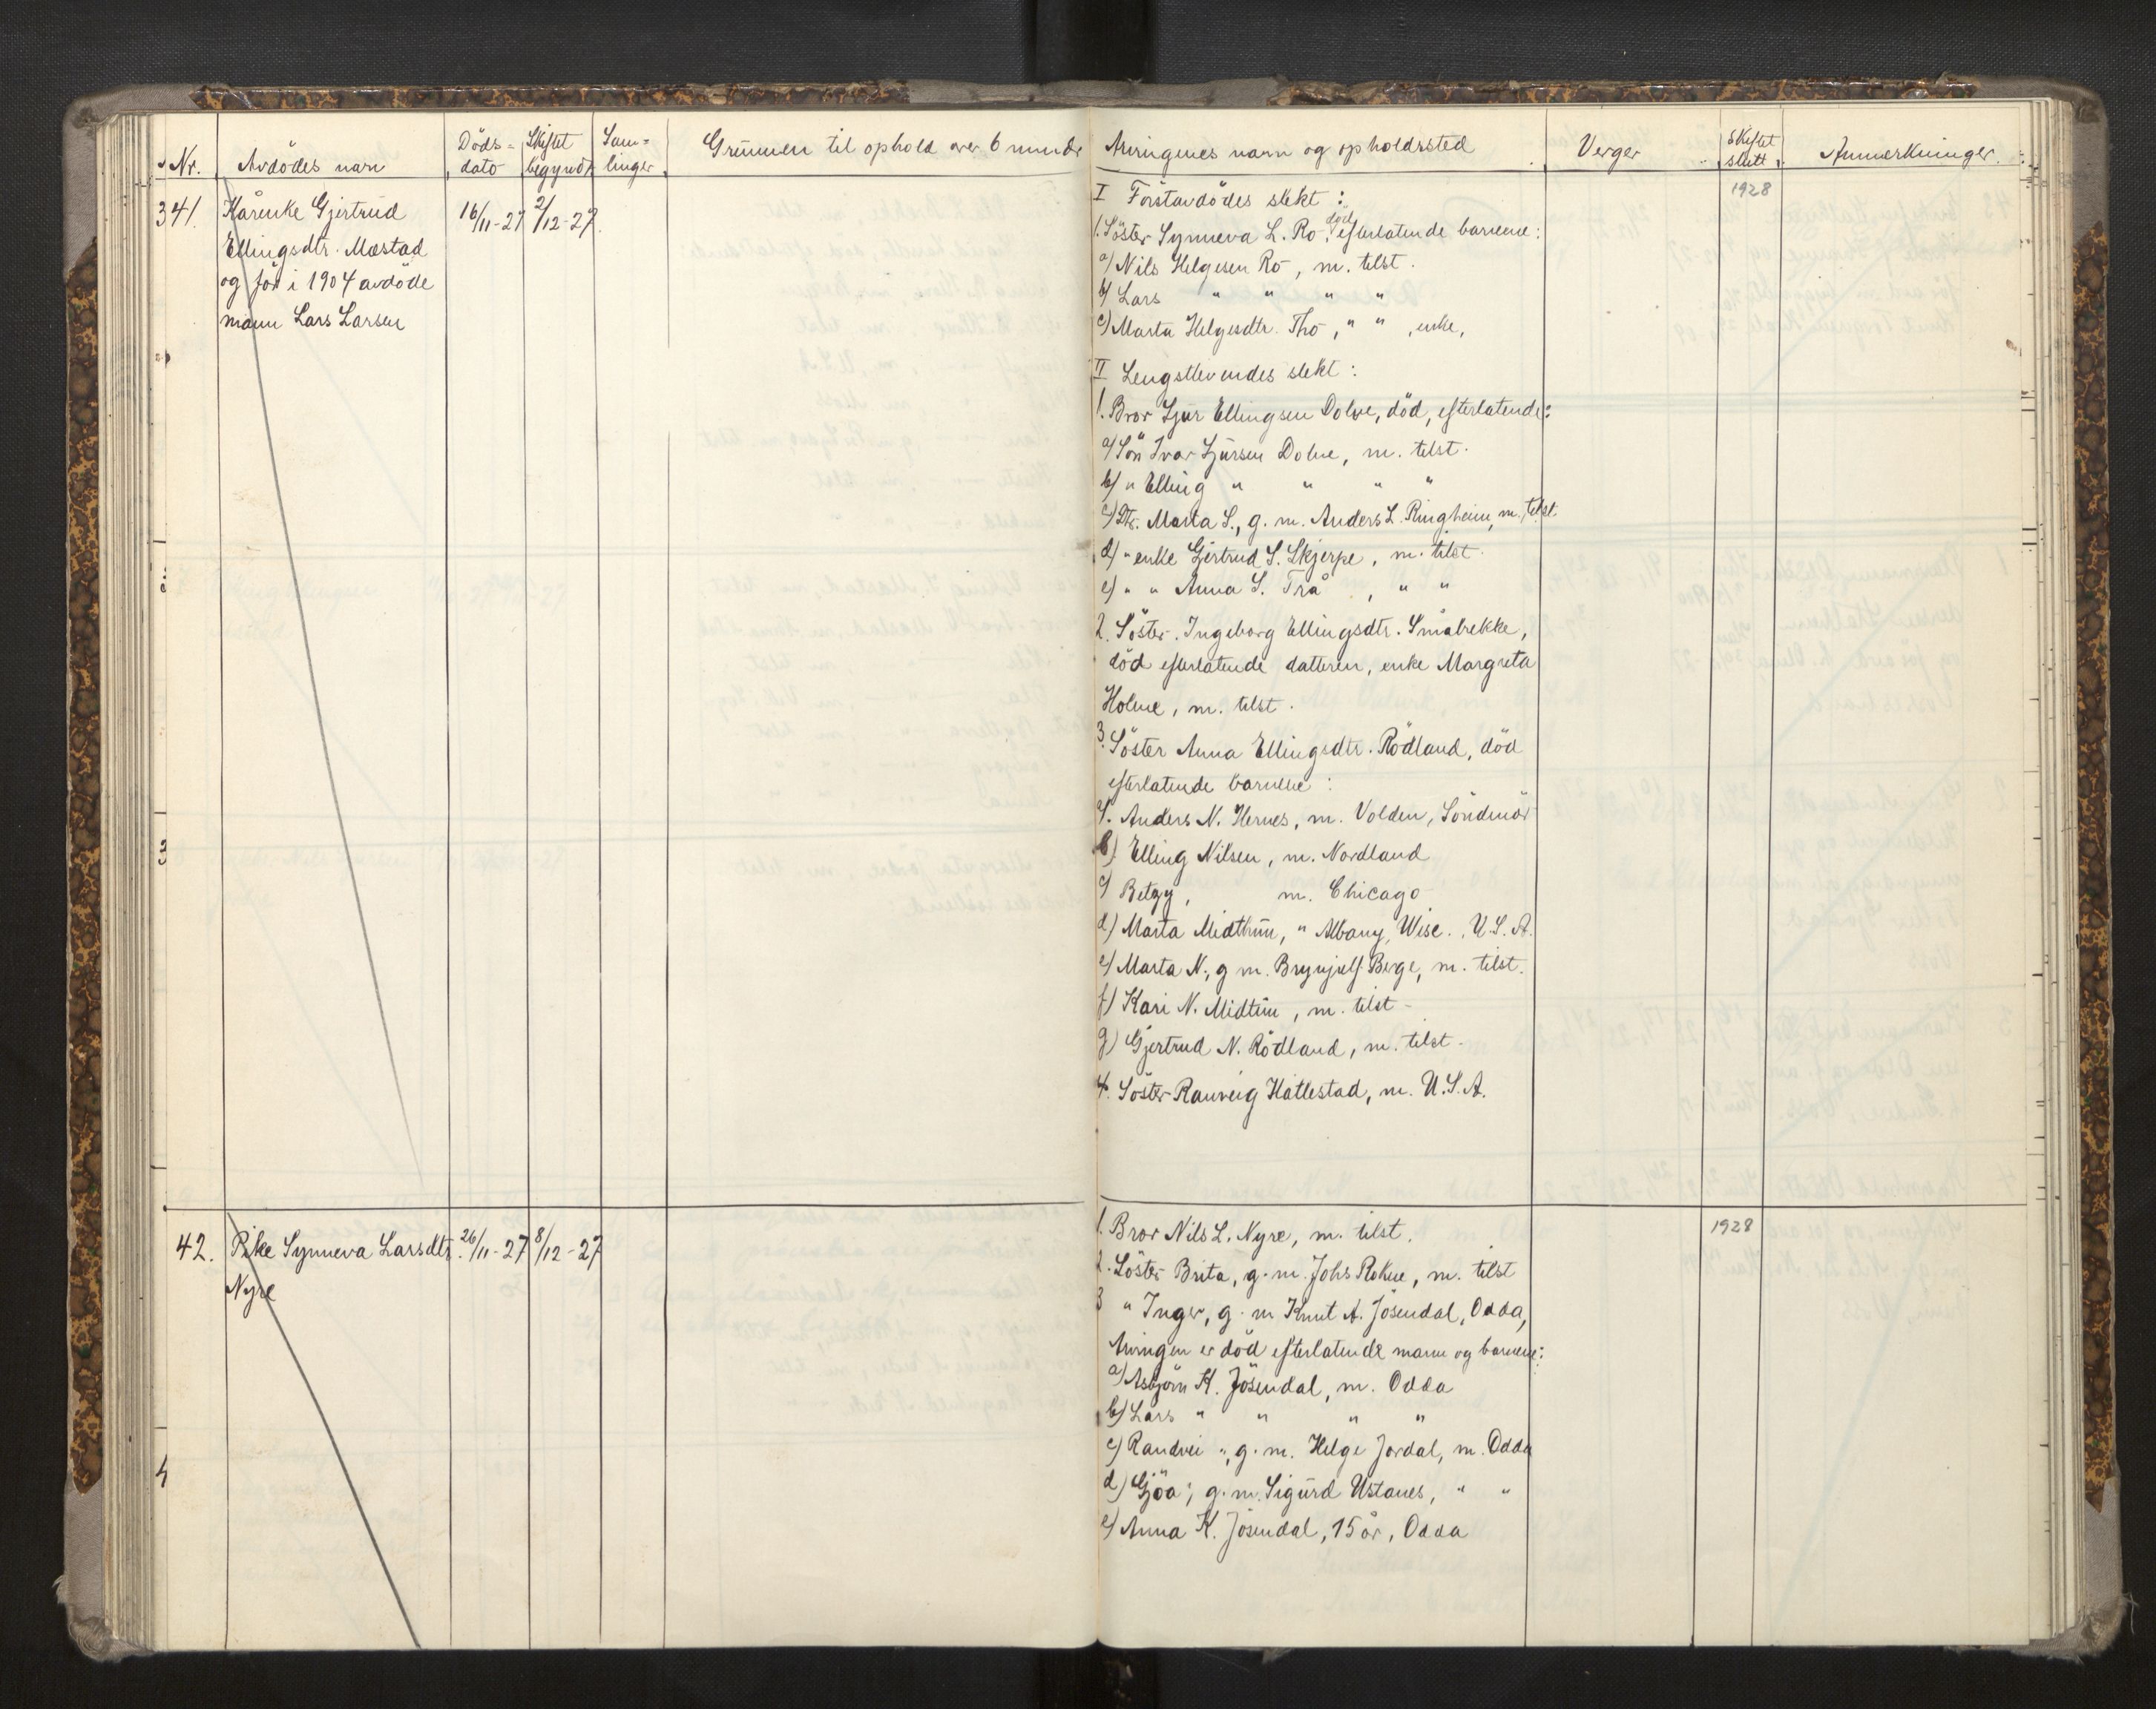 Nr.
Avdödes navn
Döds-
dato
Skiftet
begyndt
Sam-
linger
Grunnen til ophold over 6 mndr
Arvingenes navn og opholdssted
Verger
Skiftet
slutt
Anmerkninger.
341.
Kårenke Gjertrud
Ellingsdtr. Mæstad
og för i 1904 avdöde
mann Lars Larsen
16/11-27
2/12-27.
I Förstavdödes slekt:
1. Söster Synneva L. Ro, död, efterlatende barnene:
a) Nils Helgesen Ro, m. telst.
b) Lars " " " "
c) Marta Helgesdtr. Tho, " " , enke,
II Lengstlevendes slekt:
1. Bror Sjur Ellingsen Dolve, död, efterlatende:
a) Sön Ivar Sjursen Dolve, m. telst.
b) " Elling " " " "
c) Dtr. Marta S., g. m. Anders L. Ringheim, m. telst.
d) " enke Gjertrud S. Skjerpe, m. telst.
e) " " Anna S. Trå , " "
2. Söster. Ingeborg Ellingsdtr. Småbrekke,
död efterlatende datteren, enke Margreta
Holme, m. telst.
3. Söster Anna Ellingsdtr. Rödland, död
efterlatende barnene:
a). Anders N. Hernes, m. Volden, Söndmör
b) Elling Nilsen, m. Nordland
c) Betzy, m. Chicago
d) Marta Midthun, " Albany, Wisc., U.S.A.
e) Marta N., g m. Brynjulf Berge, m. telst.
f) Kari N. Midtun, m. telst-
g) Gjertrud N. Rödland, m. telst-
4. Söster Ranveig Hatlestad, m. U.S.A.
1928
42.
Pike Synneva Larsdtr.
Nyre
26/11-27
8/12-27
1. Bror Nils L. Nyre, m. telst.
2. Söster Brita, g. m. Johs Rokne, m. telst
3 " Inger, g. m Knut A. Jösendal, Odda,
Arvingen er död efterlatende mann og barnene:
a) Asbjörn K. Jösendal, m. Odda
b) Lars " " " "
c) Randvei ", g. m. Helge Jordal, m. Odda
d) Gjöa ", g. m. Sigurd Ustanes, " "
e) Anna K. Jösendal, 15 år, Odda
1928